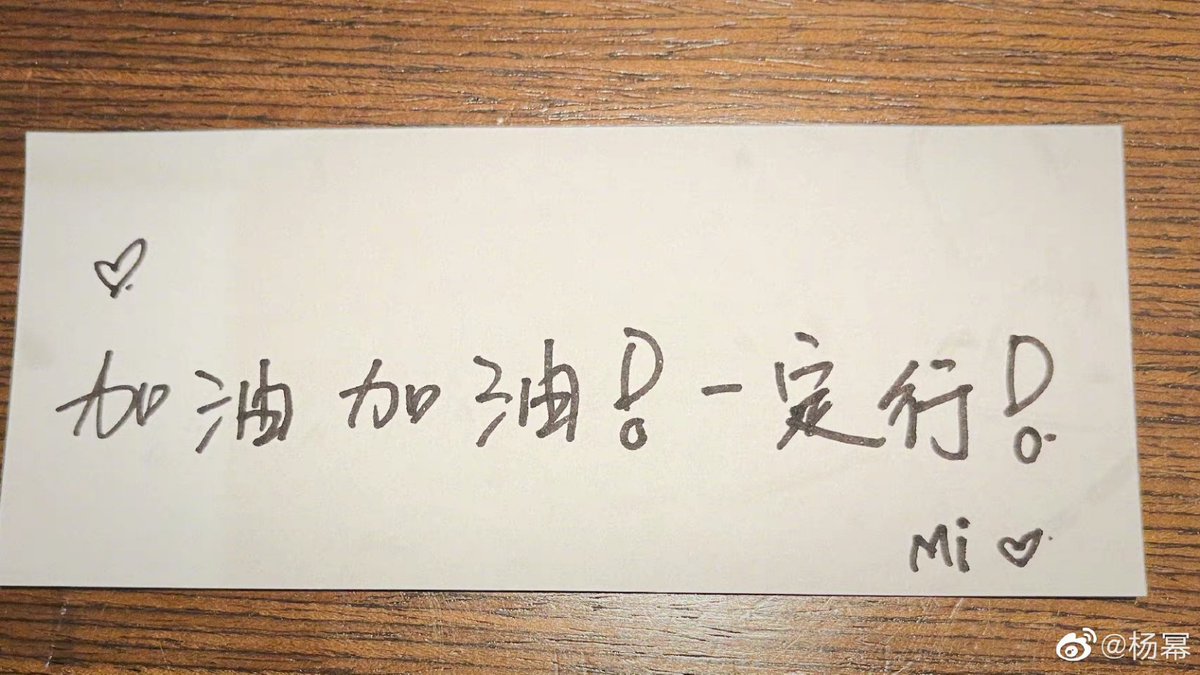 ♡
加油加油！一定行！
Mi ♡
@杨幂